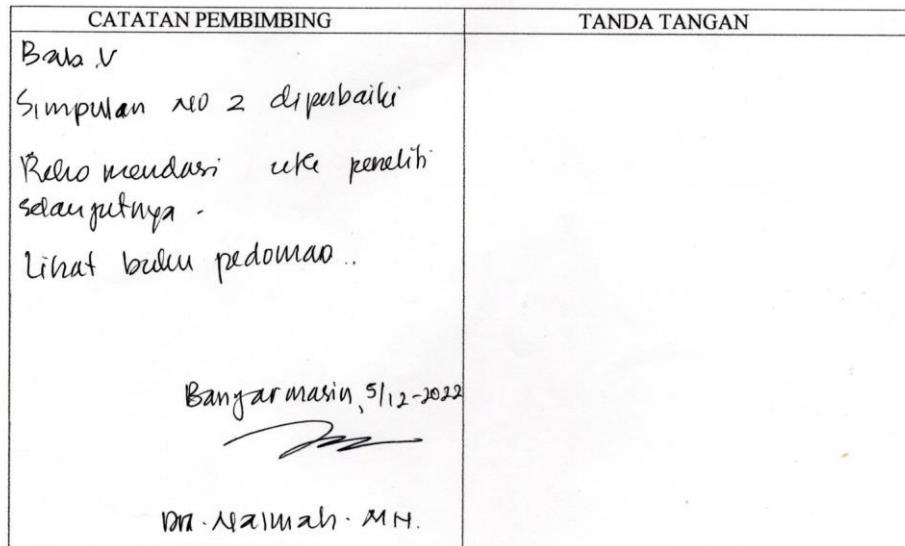 CATATAN PEMBIMBING
TANDA TANGAN
Bab V
Simpulan no 2 diperbaiki
Rekomendasi utk peneliti
selanjutnya.
Lihat buku pedoman..
Banjarmasin, 5/12-2022
Dra. Naimah. MH.